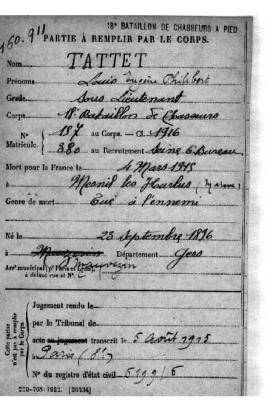 18e BATAILLON DE CHASSEURS A PIED
PARTIE À REMPLIR PAR LE CORPS.
Nom TATTET
Prénoms Louis Eugène Philibert
Grade Sous Lieutenant
Corps 18e Bataillon de Chasseurs
N° 157 au Corps. — Cl. 1916
Matricule. 880 au Recrutement Seine 6e Bureau
Mort pour la France le 4 Mars 1915
à Mesnil les Hurlus (Marne)
Genre de mort Tué à l'ennemi
Né le 23 Septembre 1896
à Mauvezin Département Gers
Arrt municipal (pr Paris et Lyon), Mauvezin
à défaut rue et N°.
Cette partie
n'est pas à remplir
par le Corps.
Jugement rendu le
par le Tribunal de
acte ou jugement transcrit le 5 août 1915
Paris (8e)
N° du registre d'état civil 5199/6
1922. [26434]